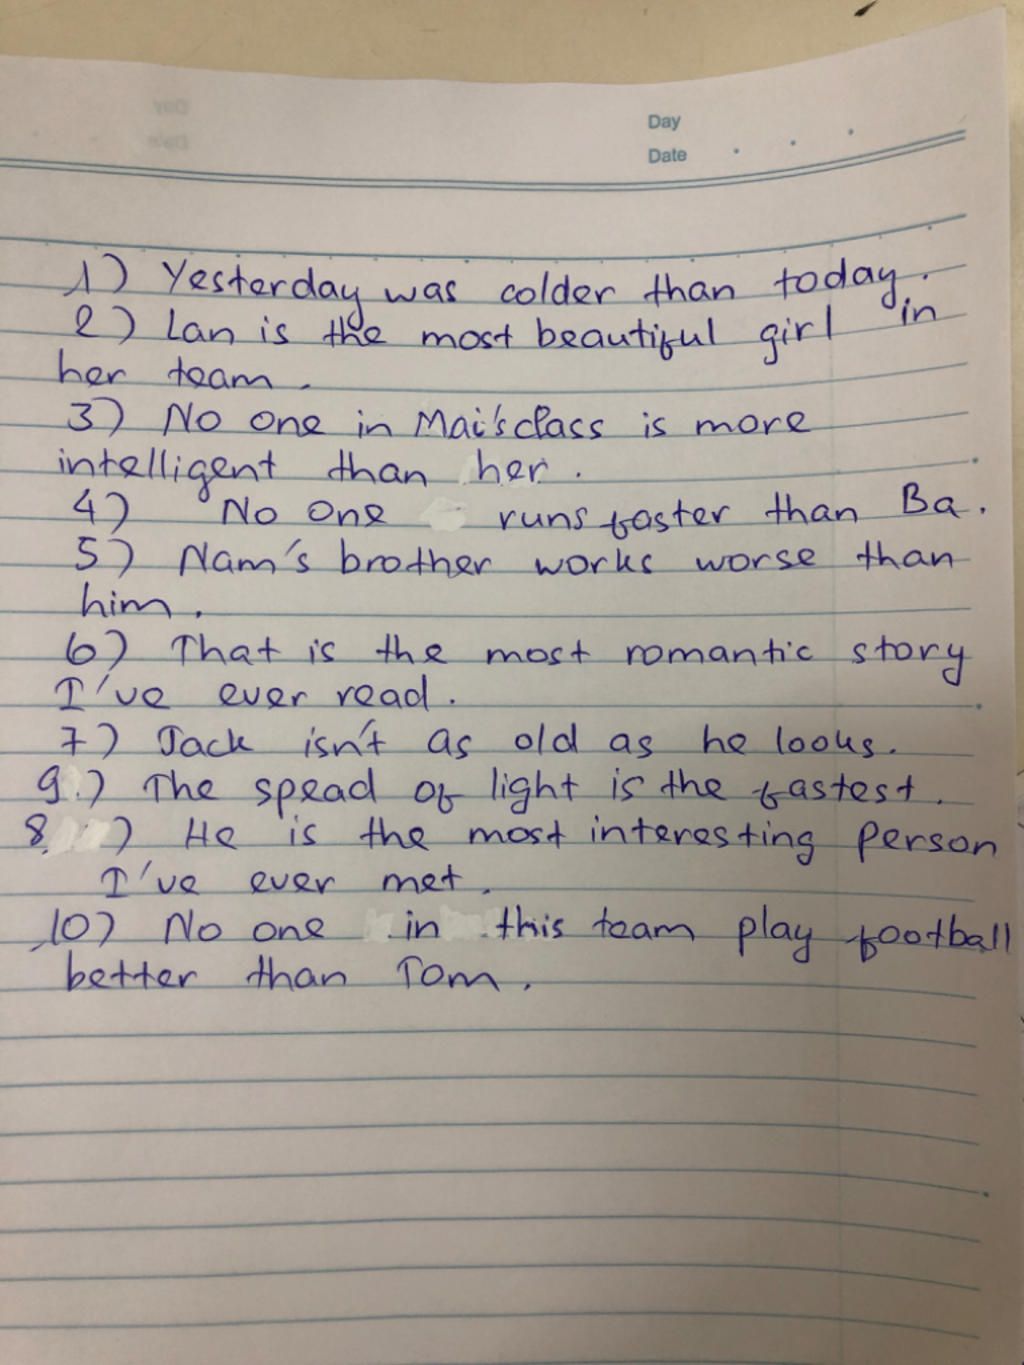 Day
Date
1) Yesterday was colder than today.
2) Lan is the most beautiful girl in
her team.
3) No one in Mai's class is more
intelligent than her.
4) No one runs faster than Ba.
5) Nam's brother works worse than
him.
6) That is the most romantic story
I've ever read.
7) Jack isn't as old as he looks.
9.) The spead of light is the fastest.
8. ) He is the most interesting person
I've ever met.
10) No one in this team play football
better than Tom.